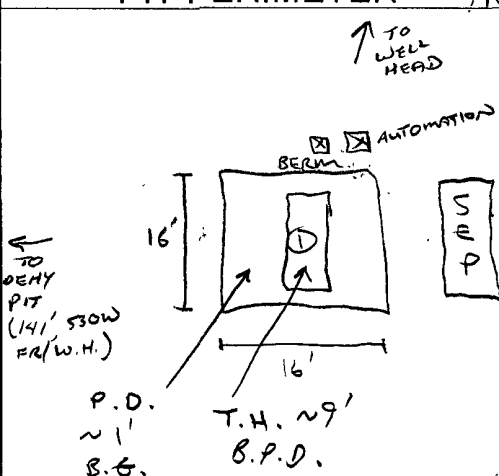 PIT PERIMETER
TO
WELL
HEAD
AUTOMATION
BERM
16'
S
E
P
①
TO
DEHY
PIT
(141', S30W
FR/W.H.)
16'
P.D.
~1'
B.G.
T.H. ~9'
B.P.D.